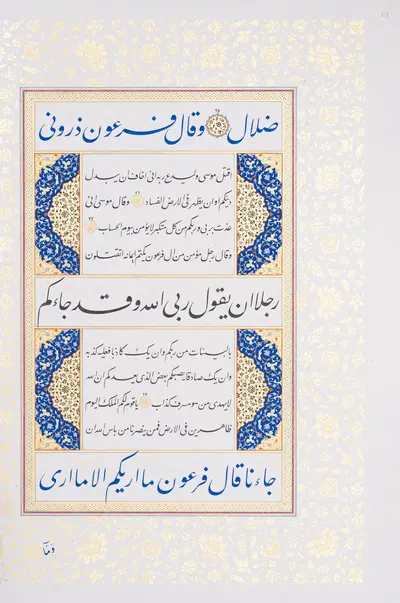 ضلال وقال فرعون ذرونی
اقتل موسی ولیدع ربه انی اخاف ان یبدل
دینکم وان یظهر فی الارض الفساد وقال موسی انی
عذت بربی وربکم من کل متکبر لا یؤمن بیوم الحساب
وقال رجل مؤمن من ال فرعون یکتم ایمانه اتقتلون
رجلا ان یقول ربی الله وقد جاءکم
بالبینات من ربکم وان یک کاذبا فعلیه کذبه
وان یک صادقا یصبکم بعض الذی یعدکم ان الله
لا یهدی من هو مسرف کذاب یا قوم لکم الملک الیوم
ظاهرین فی الارض فمن ینصرنا من باس الله ان
جاءنا قال فرعون ما اریکم الا ما اری
وما